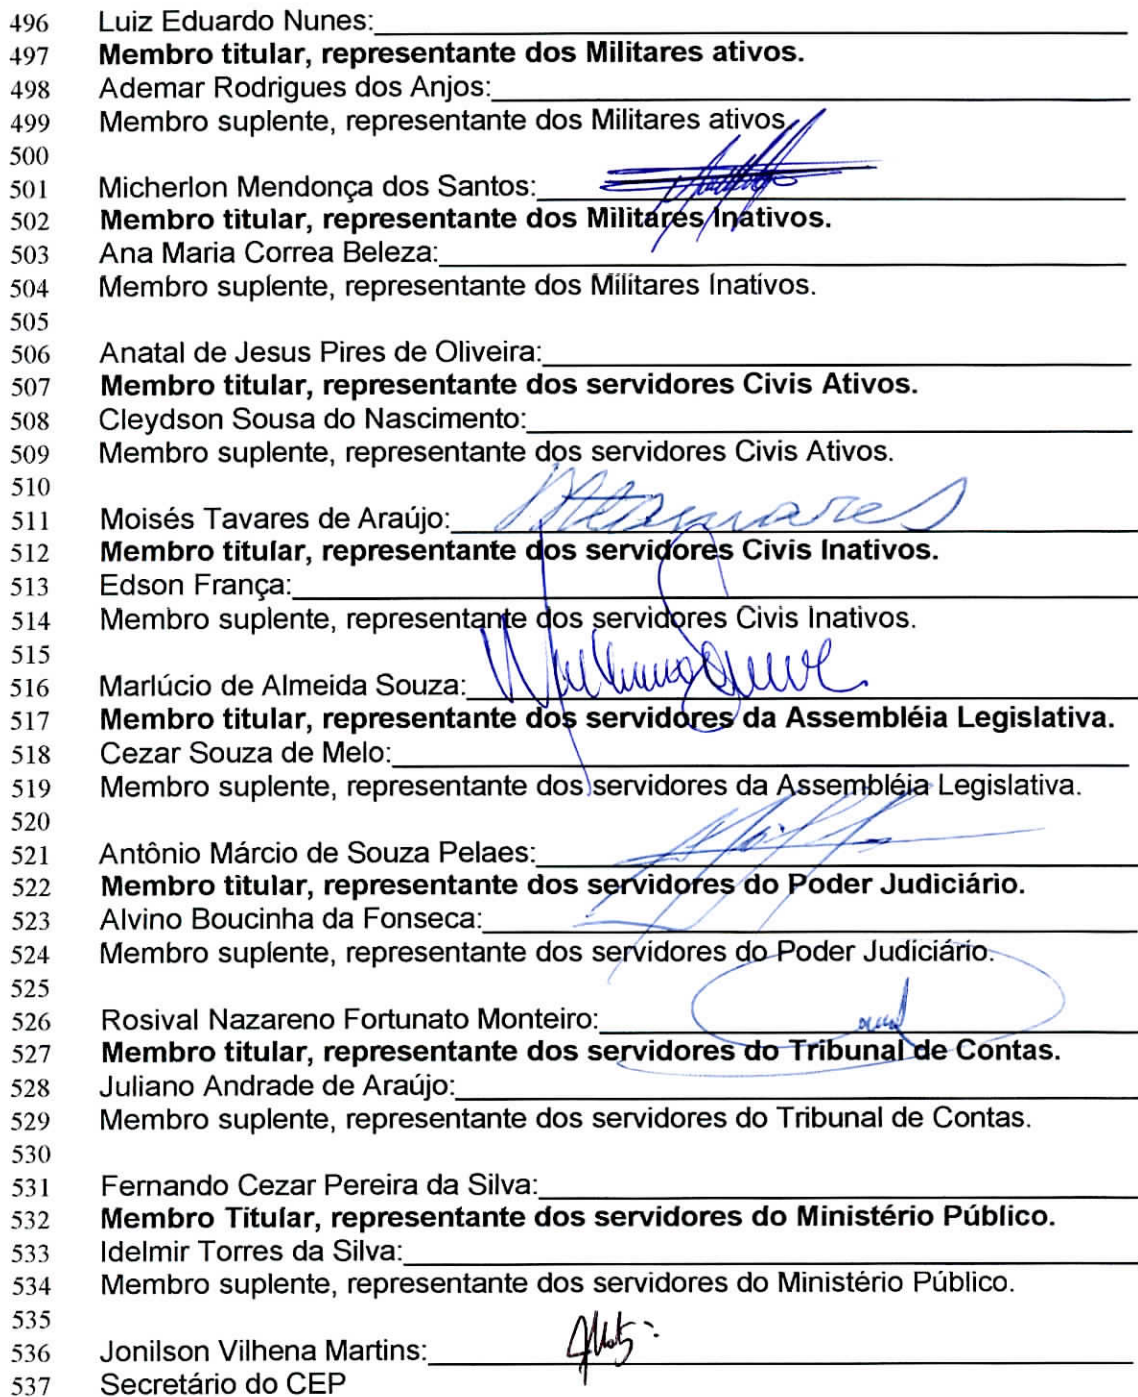 496 Luiz Eduardo Nunes:
497 Membro titular, representante dos Militares ativos.
498 Ademar Rodrigues dos Anjos:
499 Membro suplente, representante dos Militares ativos.
500
501 Micherlon Mendonça dos Santos:
502 Membro titular, representante dos Militares Inativos.
503 Ana Maria Correa Beleza:
504 Membro suplente, representante dos Militares Inativos.
505
506 Anatal de Jesus Pires de Oliveira:
507 Membro titular, representante dos servidores Civis Ativos.
508 Cleydson Sousa do Nascimento:
509 Membro suplente, representante dos servidores Civis Ativos.
510
511 Moisés Tavares de Araújo:
512 Membro titular, representante dos servidores Civis Inativos.
513 Edson França:
514 Membro suplente, representante dos servidores Civis Inativos.
515
516 Marlúcio de Almeida Souza:
517 Membro titular, representante dos servidores da Assembléia Legislativa.
518 Cezar Souza de Melo:
519 Membro suplente, representante dos servidores da Assembléia Legislativa.
520
521 Antônio Márcio de Souza Pelaes:
522 Membro titular, representante dos servidores do Poder Judiciário.
523 Alvino Boucinha da Fonseca:
524 Membro suplente, representante dos servidores do Poder Judiciário.
525
526 Rosival Nazareno Fortunato Monteiro:
527 Membro titular, representante dos servidores do Tribunal de Contas.
528 Juliano Andrade de Araújo:
529 Membro suplente, representante dos servidores do Tribunal de Contas.
530
531 Fernando Cezar Pereira da Silva:
532 Membro Titular, representante dos servidores do Ministério Público.
533 Idelmir Torres da Silva:
534 Membro suplente, representante dos servidores do Ministério Público.
535
536 Jonilson Vilhena Martins:
537 Secretário do CEP